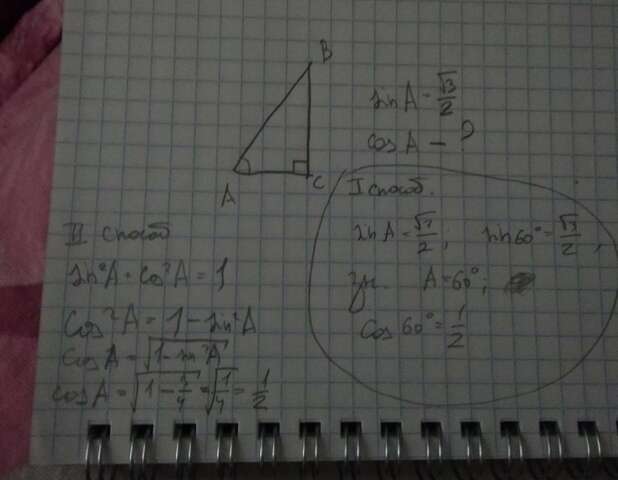 B
A
C
sin A = √3/2
cos A - ?
I способ.
sin A = √3/2; sin 60° = √3/2;
A = 60°;
cos 60° = 1/2
II способ
sin²A + cos²A = 1
cos²A = 1 - sin²A
cos A = √(1 - sin²A)
cos A = √(1 - 3/4) = √(1/4) = 1/2